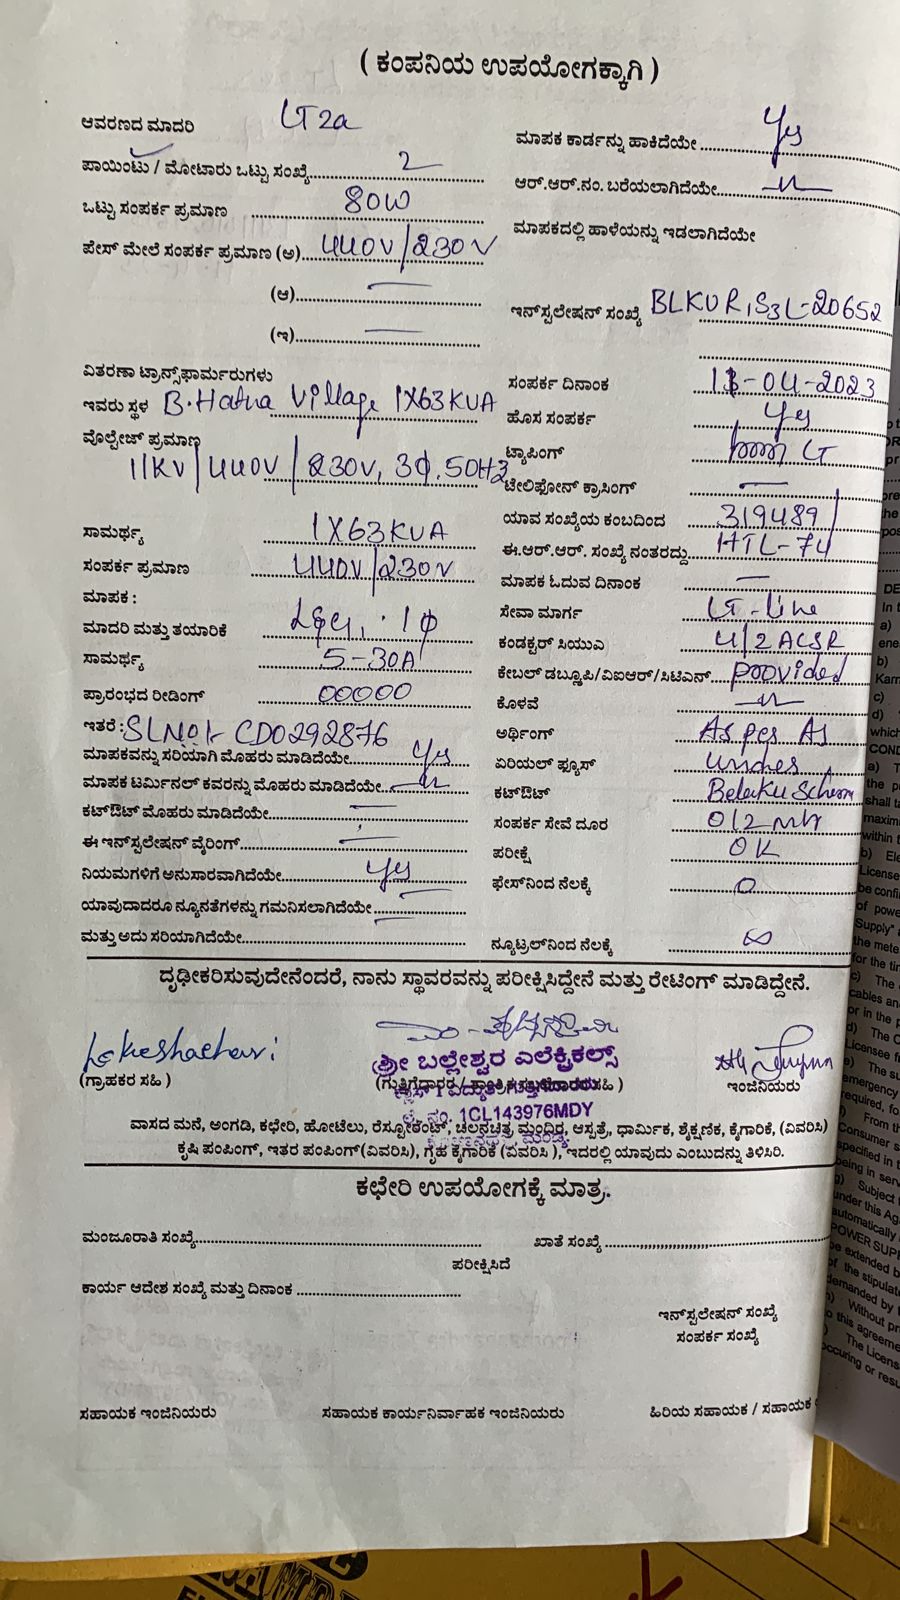 ( ಕಂಪನಿಯ ಉಪಯೋಗಕ್ಕಾಗಿ )
ಆವರಣದ ಮಾದರಿ LT2a
ಪಾಯಿಂಟು / ಮೋಟಾರು ಒಟ್ಟು ಸಂಖ್ಯೆ 2
ಒಟ್ಟು ಸಂಪರ್ಕ ಪ್ರಮಾಣ 80W
ಪೇಸ್ ಮೇಲೆ ಸಂಪರ್ಕ ಪ್ರಮಾಣ (ಅ) 440V/230V
(ಆ) —
(ಇ) —
ವಿತರಣಾ ಟ್ರಾನ್ಸ್‌ಫಾರ್ಮರುಗಳು
ಇವರು ಸ್ಥಳ B.Hatna Village 1X63KVA
ವೊಲ್ಟೇಜ್ ಪ್ರಮಾಣ
11KV/440V/230V, 3Φ.50HZ
ಸಾಮರ್ಥ್ಯ 1X63KVA
ಸಂಪರ್ಕ ಪ್ರಮಾಣ 440V/230V
ಮಾಪಕ :
ಮಾದರಿ ಮತ್ತು ತಯಾರಿಕೆ 1Φ
ಸಾಮರ್ಥ್ಯ 5-30A
ಪ್ರಾರಂಭದ ರೀಡಿಂಗ್ 00000
ಇತರೆ : SL No:- CD0292876
ಮಾಪಕವನ್ನು ಸರಿಯಾಗಿ ಮೊಹರು ಮಾಡಿದೆಯೇ Yes
ಮಾಪಕ ಟರ್ಮಿನಲ್ ಕವರನ್ನು ಮೊಹರು ಮಾಡಿದೆಯೇ
ಕಟ್‌ಔಟ್ ಮೊಹರು ಮಾಡಿದೆಯೇ —
ಈ ಇನ್‌ಸ್ಟಲೇಷನ್ ವೈರಿಂಗ್ —
ನಿಯಮಗಳಿಗೆ ಅನುಸಾರವಾಗಿದೆಯೇ Yes
ಯಾವುದಾದರೂ ನ್ಯೂನತೆಗಳನ್ನು ಗಮನಿಸಲಾಗಿದೆಯೇ —
ಮತ್ತು ಅದು ಸರಿಯಾಗಿದೆಯೇ —
ಮಾಪಕ ಕಾರ್ಡನ್ನು ಹಾಕಿದೆಯೇ Yes
ಆರ್.ಆರ್.ನಂ. ಬರೆಯಲಾಗಿದೆಯೇ
ಮಾಪಕದಲ್ಲಿ ಹಾಳೆಯನ್ನು ಇಡಲಾಗಿದೆಯೇ
ಇನ್‌ಸ್ಟಲೇಷನ್ ಸಂಖ್ಯೆ BLKVR,S3L-20652
ಸಂಪರ್ಕ ದಿನಾಂಕ 13-04-2023
ಹೊಸ ಸಂಪರ್ಕ Yes
ಟ್ಯಾಪಿಂಗ್ from LT
ಟೇಲಿಫೋನ್ ಕ್ರಾಸಿಂಗ್ —
ಯಾವ ಸಂಖ್ಯೆಯ ಕಂಬದಿಂದ 319489/
ಈ.ಆರ್.ಆರ್. ಸಂಖ್ಯೆ ನಂತರದ್ದು HTL-74
ಮಾಪಕ ಓದುವ ದಿನಾಂಕ —
ಸೇವಾ ಮಾರ್ಗ LT-line
ಕಂಡಕ್ಟರ್ ಸಿಯುಎ 4/2 ACSR
ಕೇಬಲ್ ಡಬ್ಲೂಪಿ/ವಿಐಆರ್/ಸಿಟಿಎಸ್ provided
ಕೊಳವೆ
ಅರ್ಥಿಂಗ್ As per As
ಏರಿಯಲ್ ಫ್ಯೂಸ್ under
ಕಟ್‌ಔಟ್ Belaku Scheme
ಸಂಪರ್ಕ ಸೇವೆ ದೂರ 012 Mtr
ಪರೀಕ್ಷೆ OK
ಫೇಸ್‌ನಿಂದ ನೆಲಕ್ಕೆ 0
ನ್ಯೂಟ್ರಲ್‌ನಿಂದ ನೆಲಕ್ಕೆ ∞
ದೃಢೀಕರಿಸುವುದೇನೆಂದರೆ, ನಾನು ಸ್ಥಾವರವನ್ನು ಪರೀಕ್ಷಿಸಿದ್ದೇನೆ ಮತ್ತು ರೇಟಿಂಗ್ ಮಾಡಿದ್ದೇನೆ.
Lokeshachari
(ಗ್ರಾಹಕರ ಸಹಿ )
ಶ್ರೀ ಬಲ್ಲೇಶ್ವರ ಎಲೆಕ್ಟ್ರಿಕಲ್ಸ್
ನಂ. 1CL143976MDY
ಇಂಜಿನಿಯರು
ವಾಸದ ಮನೆ, ಅಂಗಡಿ, ಕಛೇರಿ, ಹೋಟೆಲು, ರೆಸ್ಟೋರೆಂಟ್, ಚಲನಚಿತ್ರ ಮಂದಿರ, ಆಸ್ಪತ್ರೆ, ಧಾರ್ಮಿಕ, ಶೈಕ್ಷಣಿಕ, ಕೈಗಾರಿಕೆ, (ವಿವರಿಸಿ)
ಕೃಷಿ ಪಂಪಿಂಗ್, ಇತರ ಪಂಪಿಂಗ್ (ವಿವರಿಸಿ), ಗೃಹ ಕೈಗಾರಿಕೆ (ವಿವರಿಸಿ ), ಇದರಲ್ಲಿ ಯಾವುದು ಎಂಬುದನ್ನು ತಿಳಿಸಿರಿ.
ಕಛೇರಿ ಉಪಯೋಗಕ್ಕೆ ಮಾತ್ರ.
ಮಂಜೂರಾತಿ ಸಂಖ್ಯೆ ಖಾತೆ ಸಂಖ್ಯೆ
ಪರೀಕ್ಷಿಸಿದೆ
ಕಾರ್ಯ ಆದೇಶ ಸಂಖ್ಯೆ ಮತ್ತು ದಿನಾಂಕ
ಇನ್‌ಸ್ಟಲೇಷನ್ ಸಂಖ್ಯೆ
ಸಂಪರ್ಕ ಸಂಖ್ಯೆ
ಸಹಾಯಕ ಇಂಜಿನಿಯರು ಸಹಾಯಕ ಕಾರ್ಯನಿರ್ವಾಹಕ ಇಂಜಿನಿಯರು ಹಿರಿಯ ಸಹಾಯಕ / ಸಹಾಯಕ